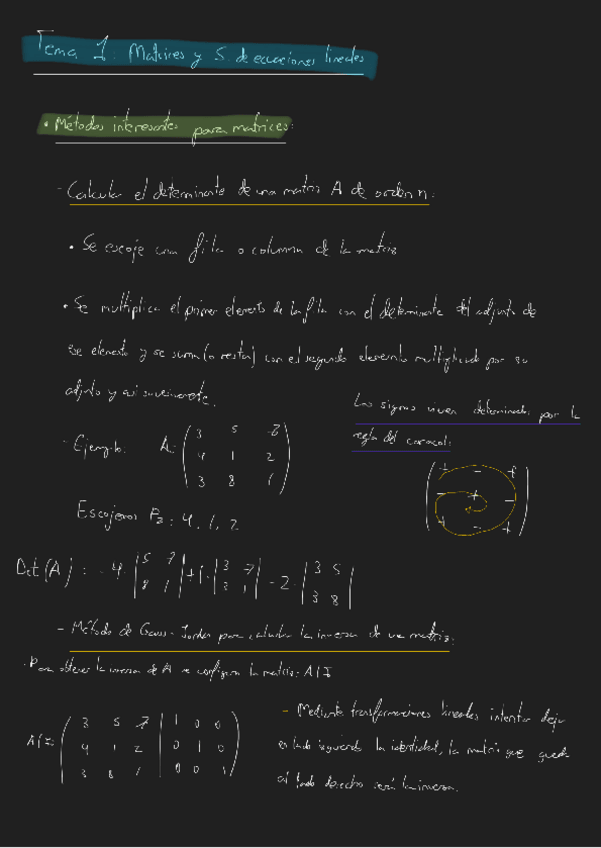 Tema 1: Matrices y S. de ecuaciones lineales
• Métodos interesantes para matrices:
- Calcular el determinante de una matriz A de orden n:
• Se escoje una fila o columna de la matriz
• Se multiplica el primer elemento de la fila con el determinante del adjunto de
ese elemento y se suma (o resta) con el segundo elemento multiplicado por su
adjunto y así sucesivamente.
Los signos vienen determinados por la
regla del caracol:
- Ejemplo: A=
3 5 7
4 1 2
3 8 1
+ - +
- + -
+ - +
Escojemos F2: 4, 1, 2
Det(A) = -4· |5 7| + 1· |3 7| - 2· |3 5|
8 1 3 1 3 8
- Método de Gauss-Jordan para calcular la inversa de una matriz:
· Para obtener la inversa de A se configura la matriz: A|I
A|I =
3 5 7 | 1 0 0
4 1 2 | 0 1 0
3 8 1 | 0 0 1
- Mediante transformaciones lineales intentar dejar
en lado izquierdo la identidad, la matriz que quede
al lado derecho será la inversa.